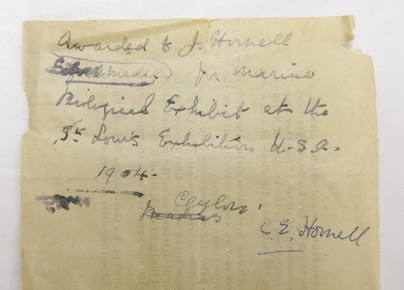 Awarded to J. Hornell
Medal for Marine
Biological Exhibit at the
St Louis Exhibition U.S.A.
1904.
Ceylon
Madras
C. E. Hornell